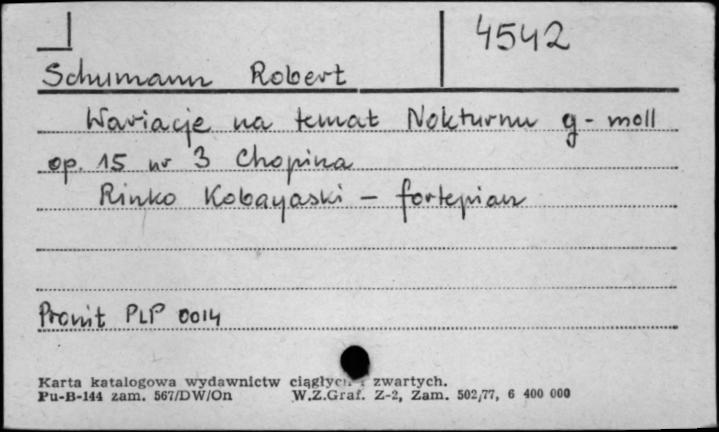 4542
Schumann Robert
Wariacje na temat Nokturnu g-moll
op. 15 nr 3 Chopina
Rinko Kobayaski - fortepian
Pronit PLP 0014
Karta katalogowa wydawnictw ciągłych i zwartych.
Pu-B-144 zam. 567/DW/On W.Z.Graf. Z-2, Zam. 502/77, 6 400 000